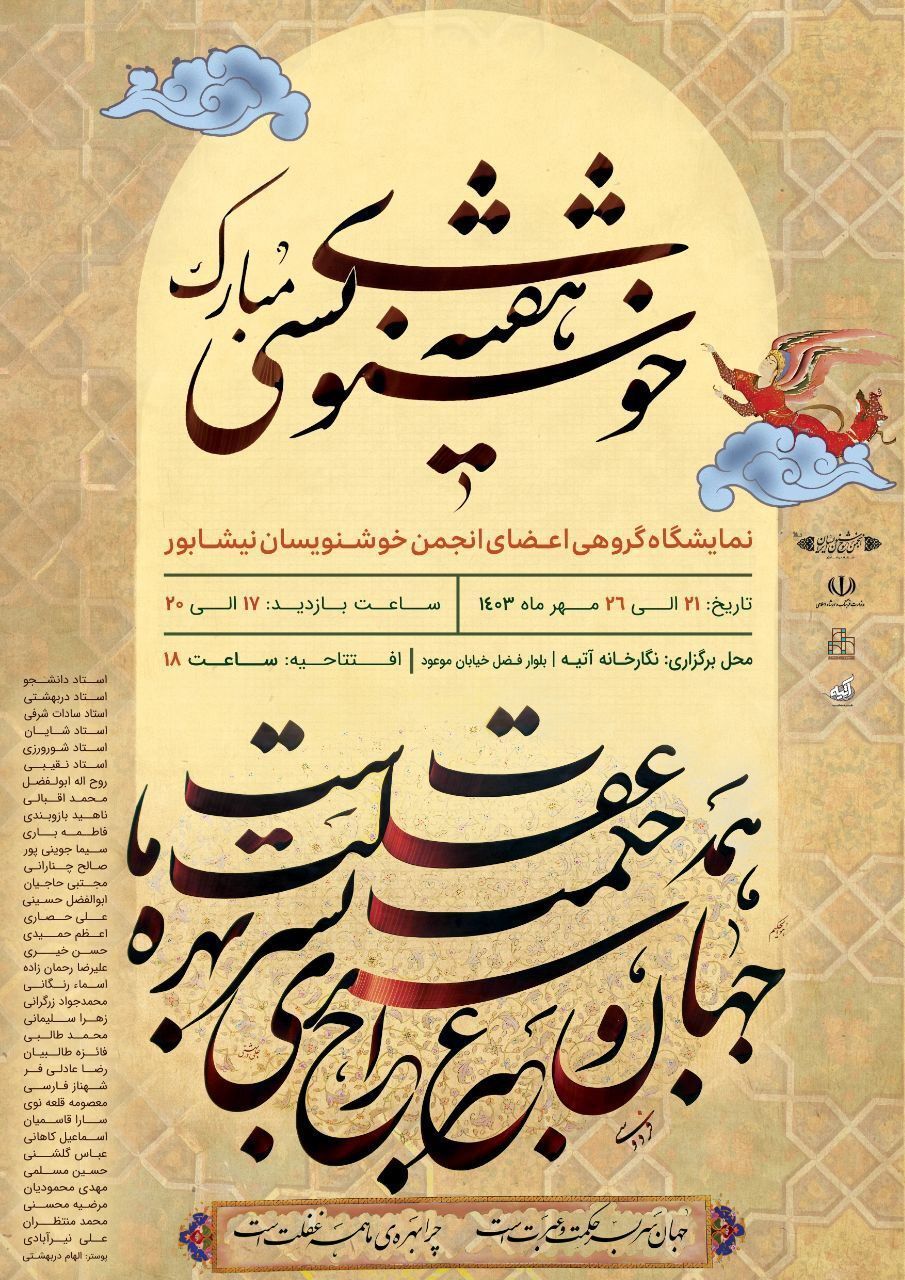 هفته خوشنویسی مبارک
نمایشگاه گروهی اعضای انجمن خوشنویسان نیشابور
تاریخ: ۲۱ الی ۲۶ مهر ماه ۱۴۰۳
ساعت بازدید: ۱۷ الی ۲۰
محل برگزاری: نگارخانه آتیه | بلوار فضل خیابان موعود | افتتاحیه: ساعت ۱۸
انجمن خوشنویسان ایران
وزارت فرهنگ و ارشاد اسلامی
آتیه
استاد دانشجو
استاد دربهشتی
استاد سادات شرفی
استاد شایان
استاد شورورزی
استاد نقیبی
روح اله ابولفضل
محمد اقبالی
ناهید بازوبندی
فاطمه باری
سیما جوینی پور
صالح چنارانی
مجتبی حاجیان
ابوالفضل حسینی
علی حصاری
اعظم حمیدی
حسن خیری
علیرضا رحمان زاده
اسماء رنگانی
محمدجواد زرگرانی
زهرا سلیمانی
محمد طالبی
فائزه طالبیان
رضا عادلی فر
شهناز فارسی
معصومه قلعه نوی
سارا قاسمیان
اسماعیل کاهانی
عباس گلشنی
حسین مسلمی
مهدی محمودیان
مرضیه محسنی
محمد منتظران
علی نیرآبادی
پوستر: الهام دربهشتی
جهان سربسر حکمت و عبرت است
چرا بهره ی ما همه غفلت است
فردوسی
جهان سربسر حکمت و عبرت است چرا بهره ی ما همه غفلت است